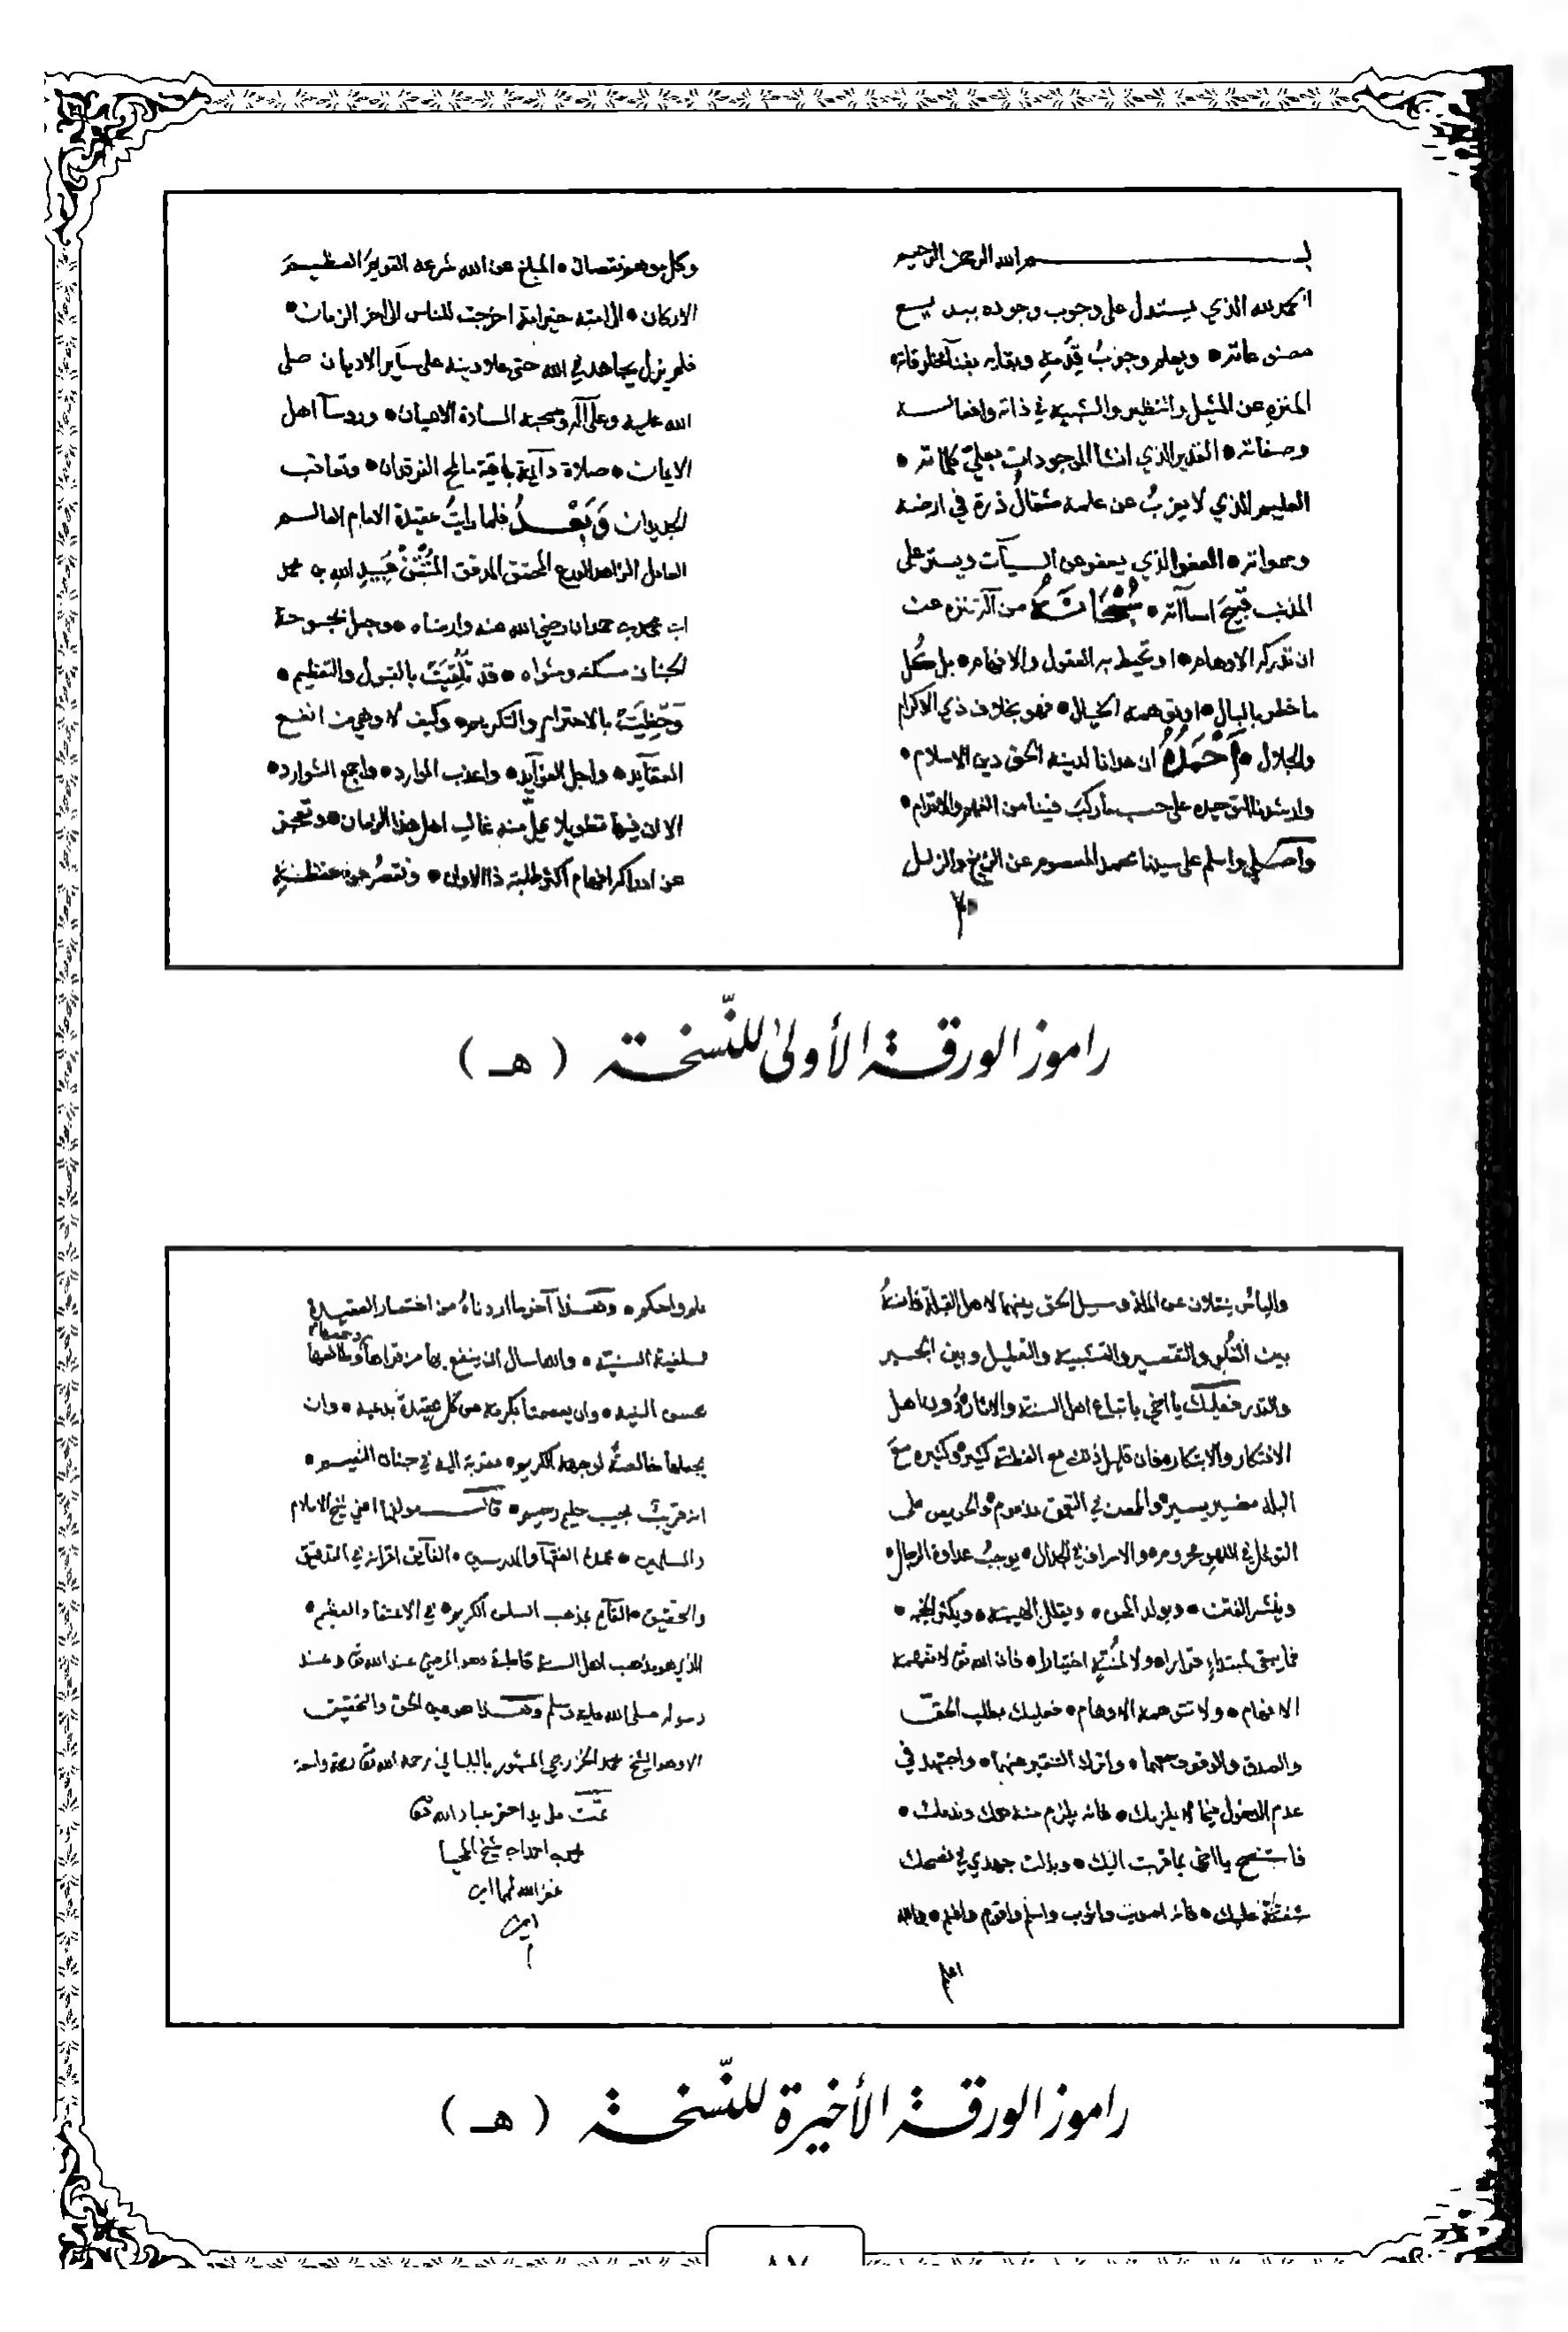 بسم الله الرحمن الرحيم
الحمد لله الذي يستدل على وجوب وجوده ببديع
مصنوعاته • ويعلم وجوب قدمه وبقايه بفنآ مخلوقاته
المنزه عن المثيل والنظير والشبيه في ذاته وافعاله
وصفاته • القدير الذي انشا الموجودات بعليّ كلماته •
العليم الذي لا يعزبُ عن علمه مثقالُ ذرة في ارضه
وسمواته • العفو الذي يعفو عن السيآت ويستر على
المذنب قبيحَ اساآته • سُبْحَانَهُ من اله تنزه عن
ان تدركه الاوهام • او تحيط به العقول والافهام • بل كُل
ما خطر بالبال • او توهمه الخيال • فهو بخلاف ذي الاكرام
والجلال • أَحْمَدُهُ ان هدانا لدينه الحق دين الاسلام •
وارشدنا لتوحيده على حسب ما ركبَ فينا من الفهم
واصلي واسلم على سيدنا محمد المعصوم عن الزيغ والزلل
وكل موهم نقصان • المبلغ عن الله شرعه القويمَ العظيمَ
الاركان • الى امته خير امة اخرجت للناس الى اخر الزمان •
فلم يزل يجاهد في الله حتى علا دينه على سآير الاديان صلى
الله عليه وعلى آله وصحبه السادة الاعيان • وروسآ اهل
الايمان • صلاة دآيمة باقية ما لاح الفرقدان • وتعاقب
الجديدان وَبَعْدُ فلما رايتُ عقيدة الامام العالم
العامل الزاهد الورع المحقق المدقق المُتْقِن عُبَيدِ الله بن محمد
ابن محمد بن حمدان رضي الله عنه وارضاه • وجعل بحبوحة
الجنان مسكنه ومثواه • قد تُلُقِّيَتْ بالقبول والتعظيم •
وَحَظِيَتْ بالاحترام والتكريم • وكيف لا وهي من انفع
العقآيد • واجل الفوآيد • واعذب الموارد • واجمع الشوارد •
الا ان فيها تطويلا يملّ منه غالب اهل هذا الزمان • وتعجز
عن ادراكه افهام اكثر طلبة ذا الاوان • وتقصُر عن حفظه
راموز الورقة الأولىٰ للنّسخة ( هـ )
بين الغلو والتقصير والتشبيه والتعطيل وبين الجبر
والقدر فعليك يا اخي باتباع اهل السنة والاثار • دون اهل
الافتكار والابتكار • فان قليل ذلك مع الفطنة كثير • وكثيره مع
البله يسير • والمعن في التعمق مذموم • والحريص على
التوغل في اللهو محروم • والاسراف في الجدال • يوجبُ عداوة الرجال •
وينشر الفتن • ويولد المحن • ويقلل الهيبة •
اختيارا • فان الله تعالى لا تفهمه
الافهام • ولا تتوهمه الاوهام • فعليك بطلب الحق
والصدق والوقوف معهما • واترك التنقير عنهما • واجتهد في
عدم الدخول فيما لا يلزمك • فانه يلزم منه همك وندمك •
فاتنصح يا اخي بما قربت اليك • وبذلت جهدي في نصحك
شفقة عليك • فانه اصون واصوب واسلم واقوم واعلم • والله
اعلم
اعلم واحكم • وهذا آخر ما اردناهُ من اختصار العقيدة
السلفية السنية • والله اسال ان ينفع بها من قراها
بحسن النية • وان يعصمنا بكرمه من كل عقيدة بدعية • وان
يجعلها خالصة لوجهه الكريم • مقربة اليه في جنات النعيم •
انه قريبٌ مجيب حليم رحيم • قال مولفها اعني شيخ الاسلام
والمسلمين • عمدة الفقهآ والمدرسين • الفآيق اقرانه في التدقيق
والتحقيق • القآيم بمذهب السلف الكريم • في الاعتقاد العظيم •
الذي هو مذهب اهل السنة قاطبة وهو المرضي عند الله تعالى وعند
رسوله صلى الله عليه وسلم وهذا هو عين الحق والتحقيق
الا وهو الشيخ محمد الخزرجي المشهور بالبلباني رحمه الله تعالى رحمة واسعة
تمّت على يد احقر عباد الله تعالى
محمد بن احمد ابن شيخ المحيا
غفر الله لهما امين
امين
راموز الورقة الأخيرة للنّسخة ( هـ )